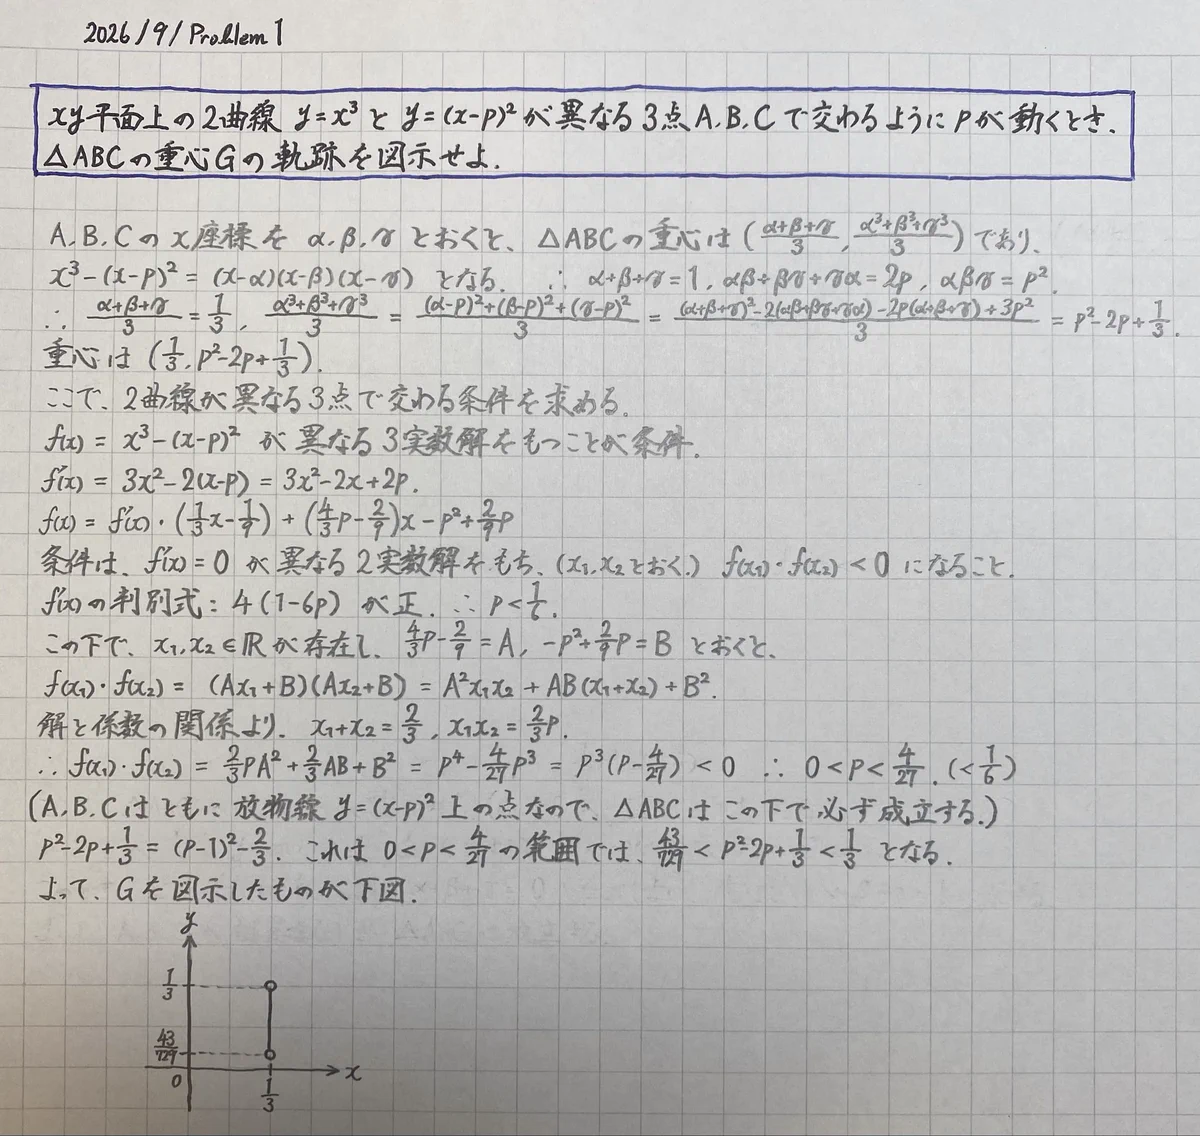 2026/9/Problem 1
xy平面上の2曲線 y=x³ と y=(x-p)² が異なる3点A,B,Cで交わるようにpが動くとき,
△ABCの重心Gの軌跡を図示せよ.
A,B,Cのx座標を α,β,γ とおくと、△ABCの重心は (α+β+γ/3, α³+β³+γ³/3) であり、
x³-(x-p)² = (x-α)(x-β)(x-γ) となる. ∴ α+β+γ=1, αβ+βγ+γα=2p, αβγ=p².
∴ α+β+γ/3 = 1/3, α³+β³+γ³/3 = (α-p)²+(β-p)²+(γ-p)²/3 = (α+β+γ)²-2(αβ+βγ+γα)-2p(α+β+γ)+3p²/3 = p²-2p+1/3.
重心は (1/3, p²-2p+1/3).
ここで、2曲線が異なる3点で交わる条件を求める.
f(x) = x³-(x-p)² が異なる3実数解をもつことが条件.
f'(x) = 3x²-2(x-p) = 3x²-2x+2p.
f(x) = f'(x)・(1/3x-1/9) + (4/3p-2/9)x - p²+2/9p
条件は、f'(x)=0 が異なる2実数解をもち、(x₁,x₂とおく.) f(x₁)・f(x₂)<0 になること.
f'(x)の判別式: 4(1-6p) が正. ∴ p<1/6.
この下で、x₁,x₂∈ℝが存在し、4/3p-2/9=A, -p²+2/9p=B とおくと、
f(x₁)・f(x₂) = (Ax₁+B)(Ax₂+B) = A²x₁x₂+AB(x₁+x₂)+B².
解と係数の関係より. x₁+x₂=2/3, x₁x₂=2/3p.
∴ f(x₁)・f(x₂) = 2/3pA²+2/3AB+B² = p⁴-4/27p³ = p³(p-4/27)<0 ∴ 0<p<4/27. (<1/6)
(A,B,Cはともに放物線 y=(x-p)² 上の点なので、△ABCはこの下で必ず成立する.)
p²-2p+1/3=(p-1)²-2/3. これは 0<p<4/27 の範囲では、43/729<p²-2p+1/3<1/3 となる.
よって、Gを図示したものが下図.
y
1/3
43/729
0
x
1/3